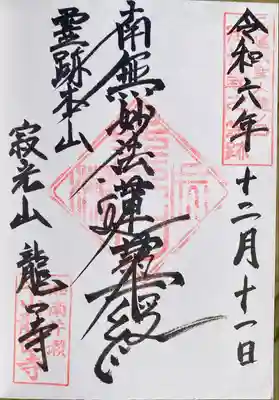 令和六年 十二月十一日
南無妙法蓮華経
霊跡本山
寂光山 龍口寺